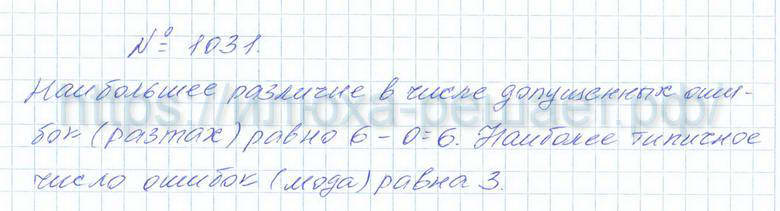 № 1031.
Наибольшее различие в числе допущенных оши-
бок (размах) равно 6 - 0 = 6. Наиболее типичное
число ошибок (мода) равна 3.
https://илюха-решает.рф/